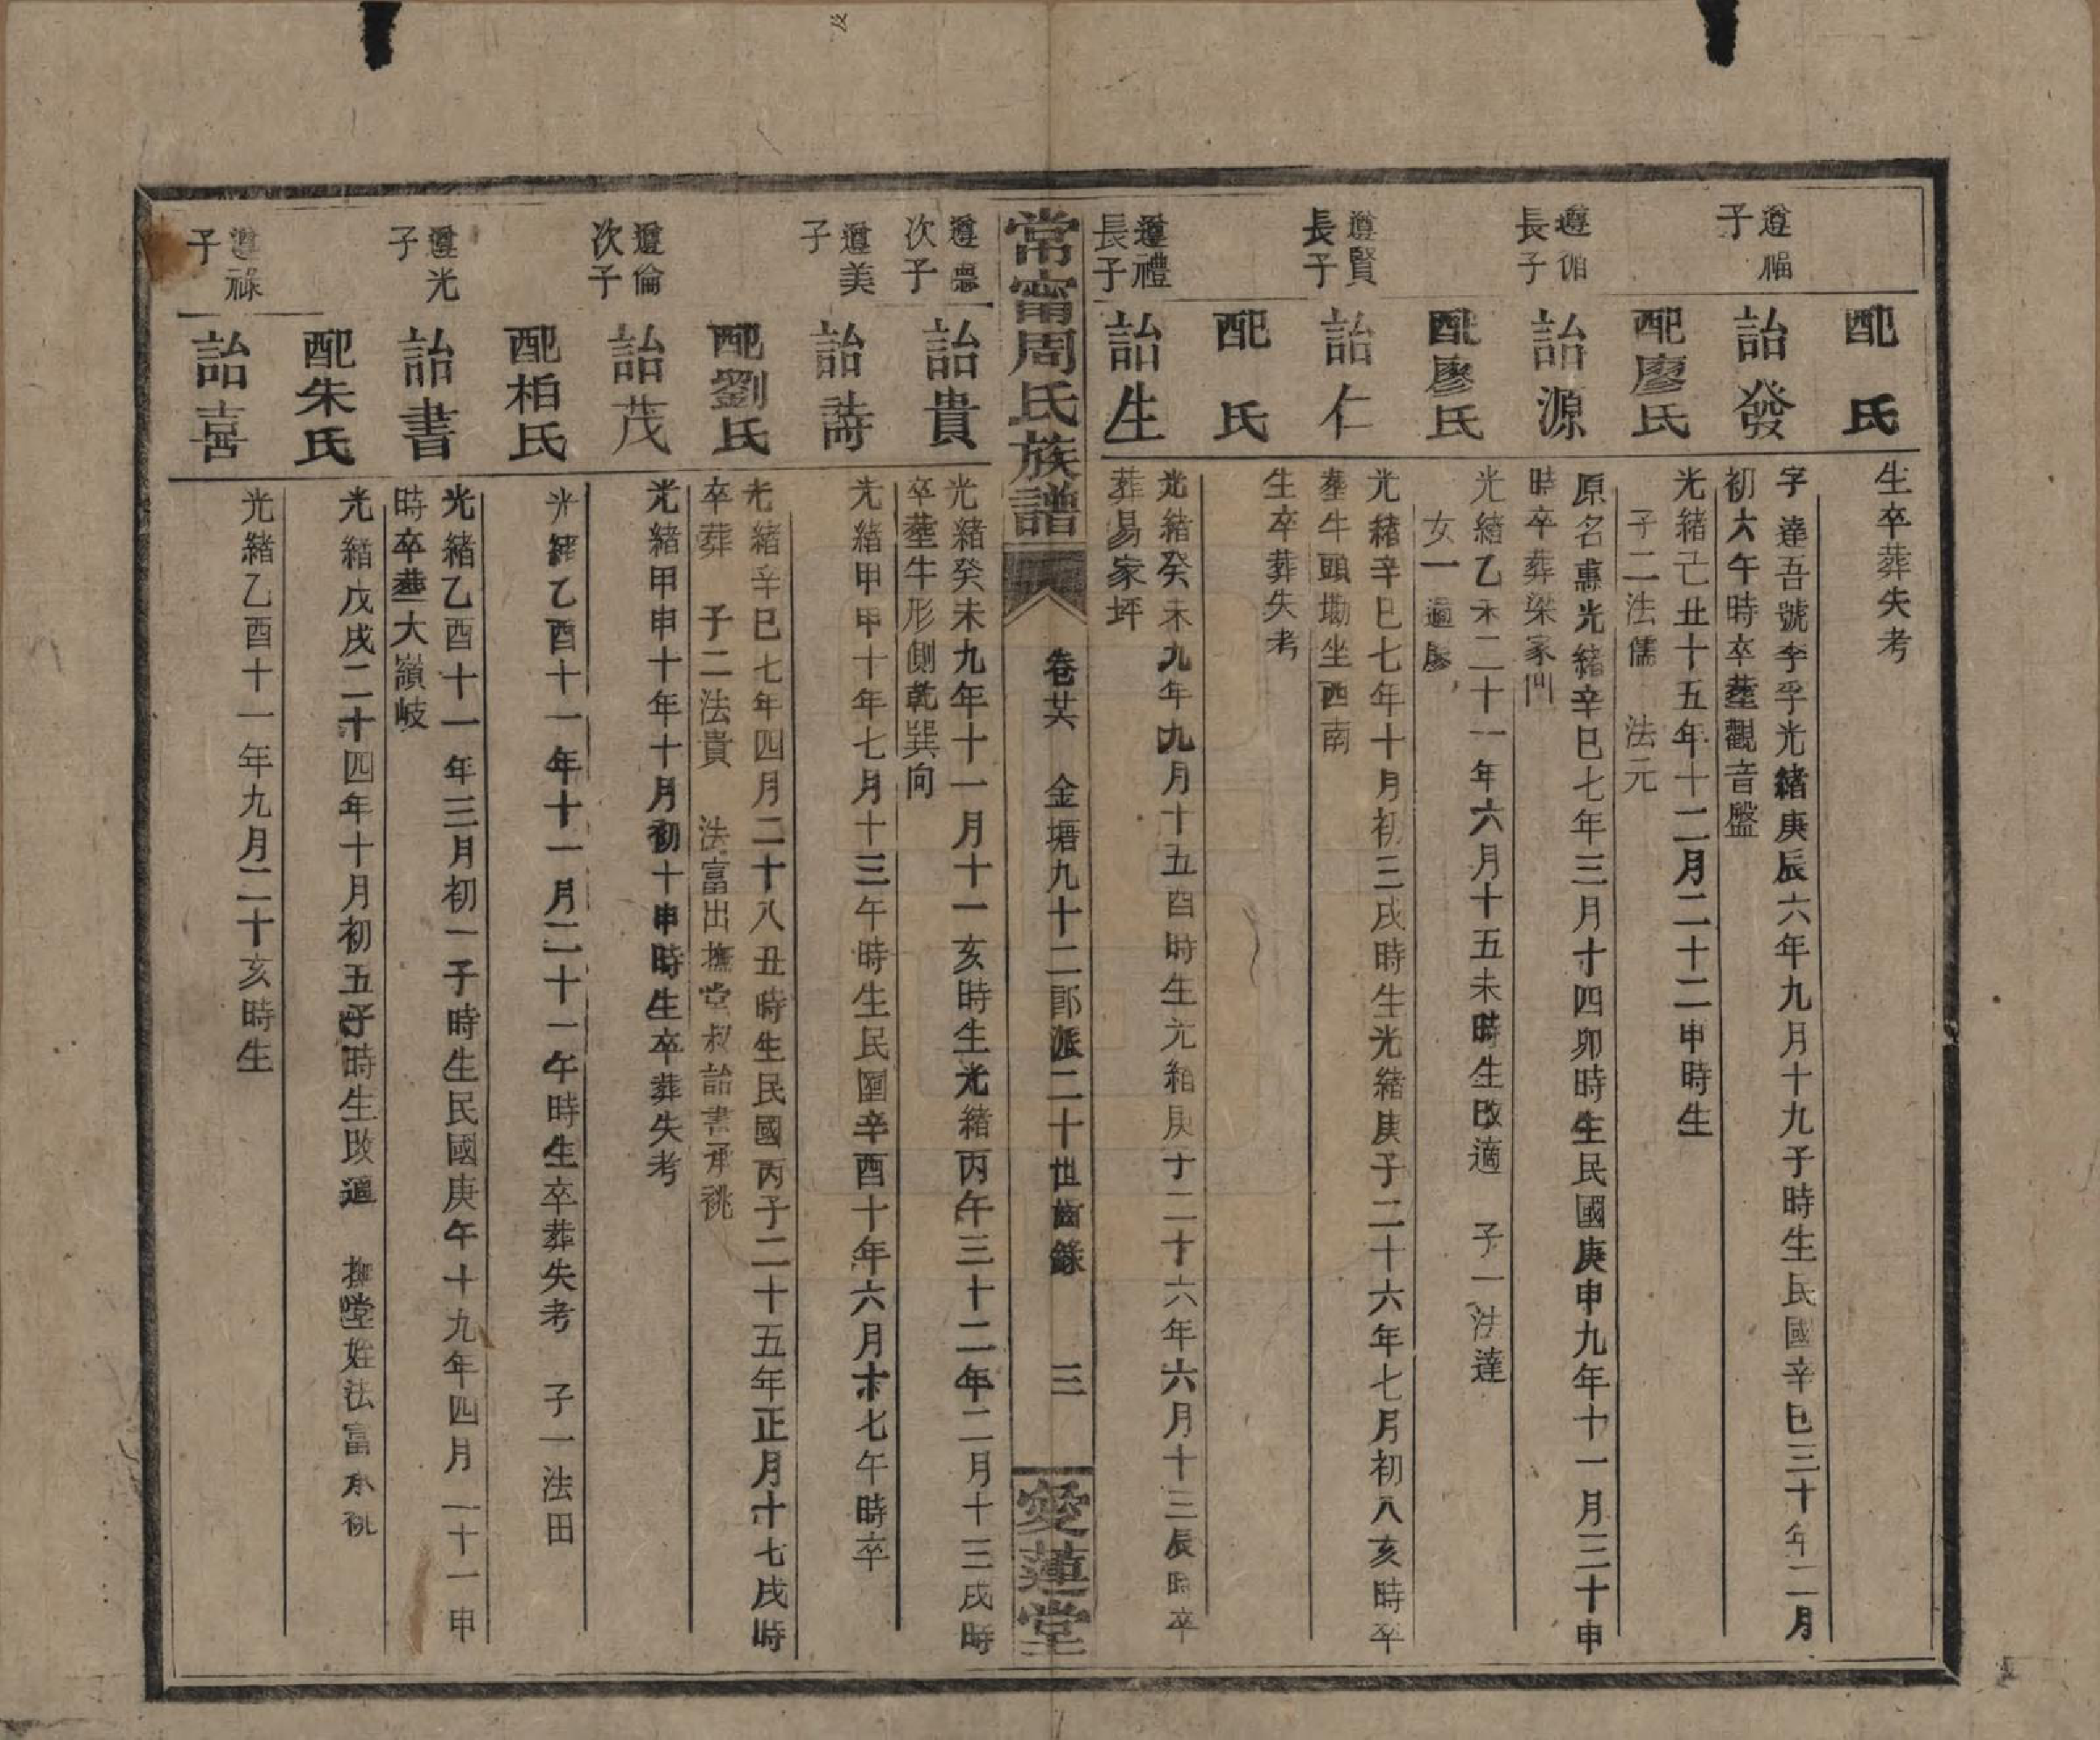 配 氏
生卒葬失考
遵福
子
詒發
字達吾號李孚光緒庚辰六年九月十九子時生民國辛巳三十年二月
初六午時卒葬觀音盤
配廖氏
光緒己丑十五年十二月二十二申時生
子二法儒 法元
遵佰
長子
詒源
原名惠光緒辛巳七年三月十四卯時生民國庚申九年十一月三十申
時卒葬梁家
配廖氏
光緒乙未二十一年六月十五未時生改適 子一法達
女一適廖
遵賢
長子
詒仁
光緒辛巳七年十月初三戌時生光緒庚子二十六年七月初八亥時卒
葬牛頭坳坐西南
配 氏
生卒葬失考
遵禮
長子
詒生
光緒癸未九年九月十五酉時生光緒庚子二十六年六月十三辰時卒
葬易家坪
常甯周氏族譜
卷廿六 金塘九十二郎派二十世齒錄 三
愛蓮堂
遵
次子
詒貴
光緒癸未九年十一月十一亥時生光緒丙午三十二年二月十三戌時
卒葬牛形側乾巽向
遵美
子
詒濤
光緒甲申十年七月十三午時生民國辛酉十年六月十七午時卒
配劉氏
光緒辛巳七年四月二十八丑時生民國丙子二十五年正月十七戌時
卒葬 子二法貴 法富出撫堂叔詒書承祧
遵倫
次子
詒茂
光緒甲申十年十月初十申時生卒葬失考
配栢氏
光緒乙酉十一年十一月二十一午時生卒葬失考 子一法田
遵光
子
詒書
光緒乙酉十一年三月初一子時生民國庚午十九年四月二十一申
時卒葬大嶺岐
配朱氏
光緒戊戌二十四年十月初五子時生改適 撫堂姪法富承祧
遵祿
子
詒喜
光緒乙酉十一年九月二十亥時生